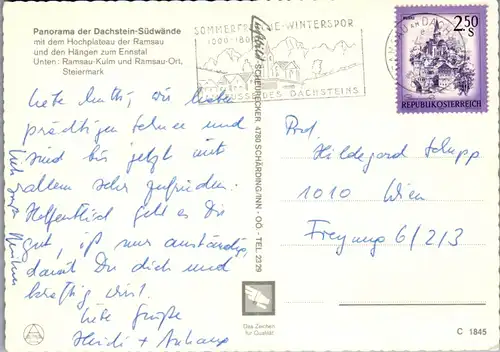 Panorama der Dachstein-Südwände
mit dem Hochplateau der Ramsau
und den Hängen zum Ennstal
Unten: Ramsau-Kulm und Ramsau-Ort,
Steiermark
SOMMERFRISCHE-WINTERSPORT
AM FUSSE DES DACHSTEINS
MURAU
2.50
S
REPUBLIK ÖSTERREICH
Liebe Mutti, wir haben
prächtigen Schnee und
sind bis jetzt mit
allem sehr zufrieden.
Hoffentlich geht es Dir
gut, iß nur anständig,
damit Du dick und
kräftig wirst.
Liebe Grüße
Heidi + Anhang
Luftbild SCHEUERECKER 4780 SCHÄRDING/INN - OÖ. - TEL. 23 29
Prof.
Hildegard Schupp
1010 Wien
Freyung 6/2/3
Das Zeichen
für Qualität
C 1845